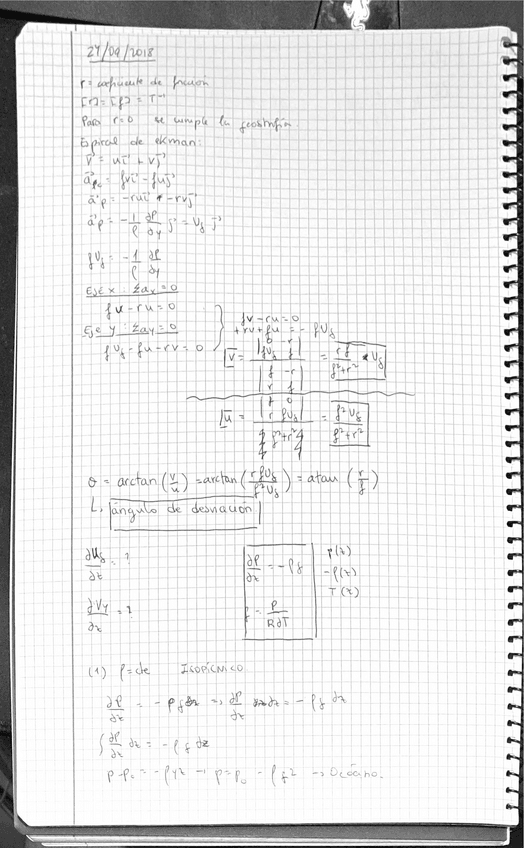 24/09/2018
r = coeficiente de fricción
[r] = [f] = T⁻¹
Para r=0 se cumple la geostrofía.
Espiral de ekman:
v⃗ = ui⃗ + vj⃗
a⃗fc = fvi⃗ - fuj⃗
a⃗F = -rui⃗ + -rvj⃗
a⃗p = -1/ρ ∂P/∂y j⃗ = Ug j⃗
fUg = -1/ρ ∂P/∂y
Eje x: Σax = 0
fu - ru = 0
Eje y: Σay = 0
fUg - fu - rv = 0
fv - ru = 0
+rv + fu = - fUg
v = |0 -r| |fUg f| / |f -r| |r f| = rf/(f²+r²) * Ug
u = |f 0| |r fUg| / {f²+r²} = f²Ug/(f²+r²)
θ = arctan(v/u) = arctan(rfUg/f²Ug) = atan (r/f)
L, ángulo de desviación
∂Ug/∂z = ?
∂Vg/∂z = ?
∂P/∂z = -ρg
f = P/RdT
P(z)
-ρ(z)
T(z)
(1) ρ=cte ISOPÍCNICO
∂P/∂z = -ρg ⇒ ∂P/∂z dz = -ρg dz
∫∂P/∂z dz = -ρg dz
P-P₀ = -ρgz → P=P₀ - ρgz → Océano.